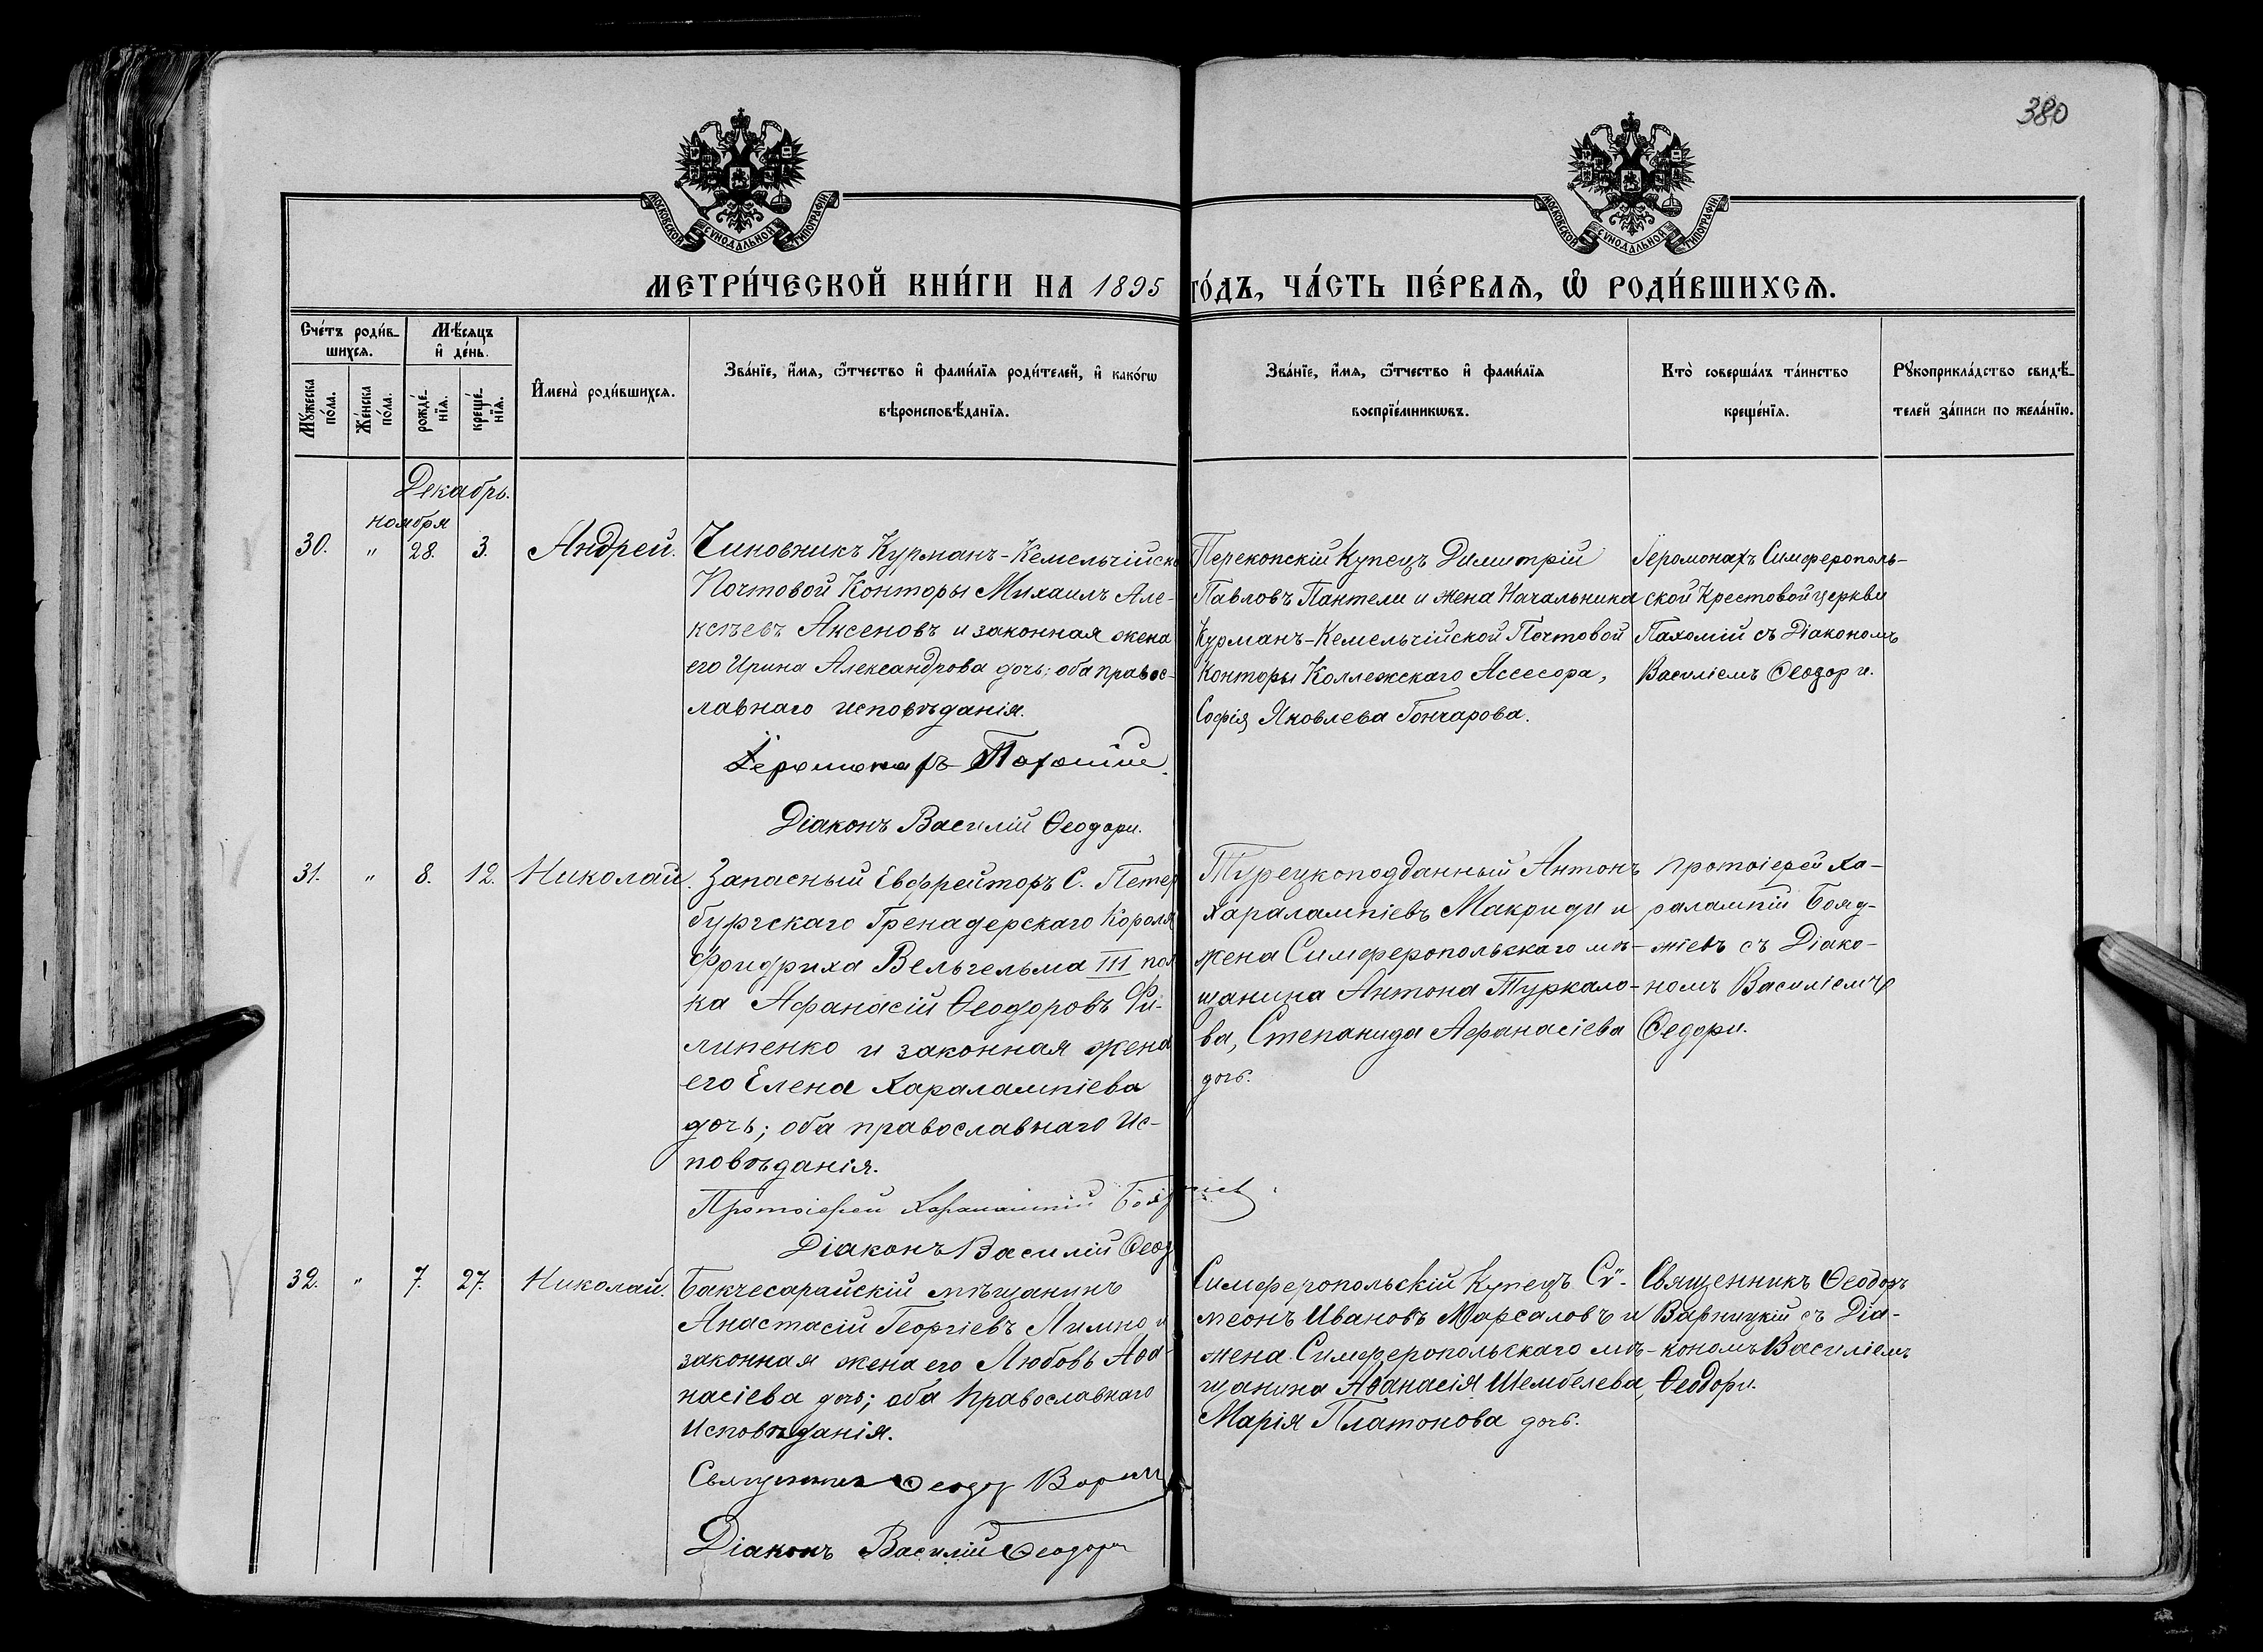 380
МОСКОВСКОЙ СѴНОДАЛЬНОЙ ТИПОГРАФІИ
МОСКОВСКОЙ СѴНОДАЛЬНОЙ ТИПОГРАФІИ
МЕТРИ́ЧЕСКОЙ КНИ́ГИ НА 1895 ГО́ДЪ, ЧА́СТЬ ПЕ́РВАѦ, Ѡ҆ РОДИ́ВШИХСѦ.
Сче́тъ роди́в-
шихсѧ.
Мѣ́сѧцъ
и҆ де́нь.
Мꙋ́жеска
по́ла.
Же́нска
по́ла.
рожде́-
нїѧ.
креще́-
нїѧ.
И҆мена̀ роди́вшихсѧ.
Зва́нїе, и҆́мѧ, ѻ҆́тчество и҆ фами́лїѧ роди́телей, и҆ како́гѡ
вѣроисповѣ́данїѧ.
Зва́нїе, и҆́мѧ, ѻ҆́тчество и҆ фами́лїѧ
воспрїе́мникѡвъ.
Кто̀ соверша́лъ та́инство
креще́нїѧ.
Рꙋкоприкла́дство свидѣ́-
телей за́писи по жела́нїю.
Декабрь.
ноября
30. " 28. 3. Андрей.
Чиновникъ Курманъ-Кемельчійско
Почтовой Конторы Михаилъ Але-
ксѣевъ Аксеновъ и законная жена
его Ирина Александрова дочь; оба правос-
лавнаго исповѣданія.
Іеромонахъ Пахомій.
Діаконъ Василій Ѳеодори.
Перекопскій Купецъ Димитрій
Павловъ Пантели и жена Начальника
Курманъ-Кемельчійской Почтовой
Конторы Коллежскаго Ассесора,
Софія Яковлева Гончарова.
Іеромонахъ Симферополь-
ской Крестовой церкви
Пахомій съ Діакономъ
Василіемъ Ѳеодори.
31. " 8. 12. Николай.
Запасный Ефрейторъ С. Петер
бургскаго Гренадерскаго Короля
Фридриха Вельгельма III пол
ка Афанасій Ѳеодоровъ Фи-
липенко и законная жена
его Елена Харалампіева
дочь; оба православнаго ис-
повѣданія.
Протоіерей Харалампій Бояджіев
Діаконъ Василій Ѳеод
Турецкоподданный Антонъ
Харалампіевъ Макриди и
жена Симферопольскаго мѣ-
щанина Антона Туркало-
ва, Степанида Афанасіева
дочь.
протоіерей Ха-
ралампій Бояд-
жіевъ съ Діако-
номъ Василіемъ
Ѳедори.
32. " 7. 27. Николай.
Бакчесарайскій мѣщанинъ
Анастасій Георгіевъ Лимно и
законная жена его Любовь Аѳа-
насіева дочь; оба Православнаго
Исповѣданія.
Священникъ Ѳеодор Варниц
Діаконъ Василій Ѳеодори
Симферопольскій Купецъ Сѵ-
меонъ Ивановъ Марсаловъ и
жена Симферопольскаго мѣ-
щанина Аѳанасія Шембелева,
Марія Платонова дочь.
Священникъ Ѳеодоръ
Варницкій съ Діа-
кономъ Василіемъ
Ѳеодори.